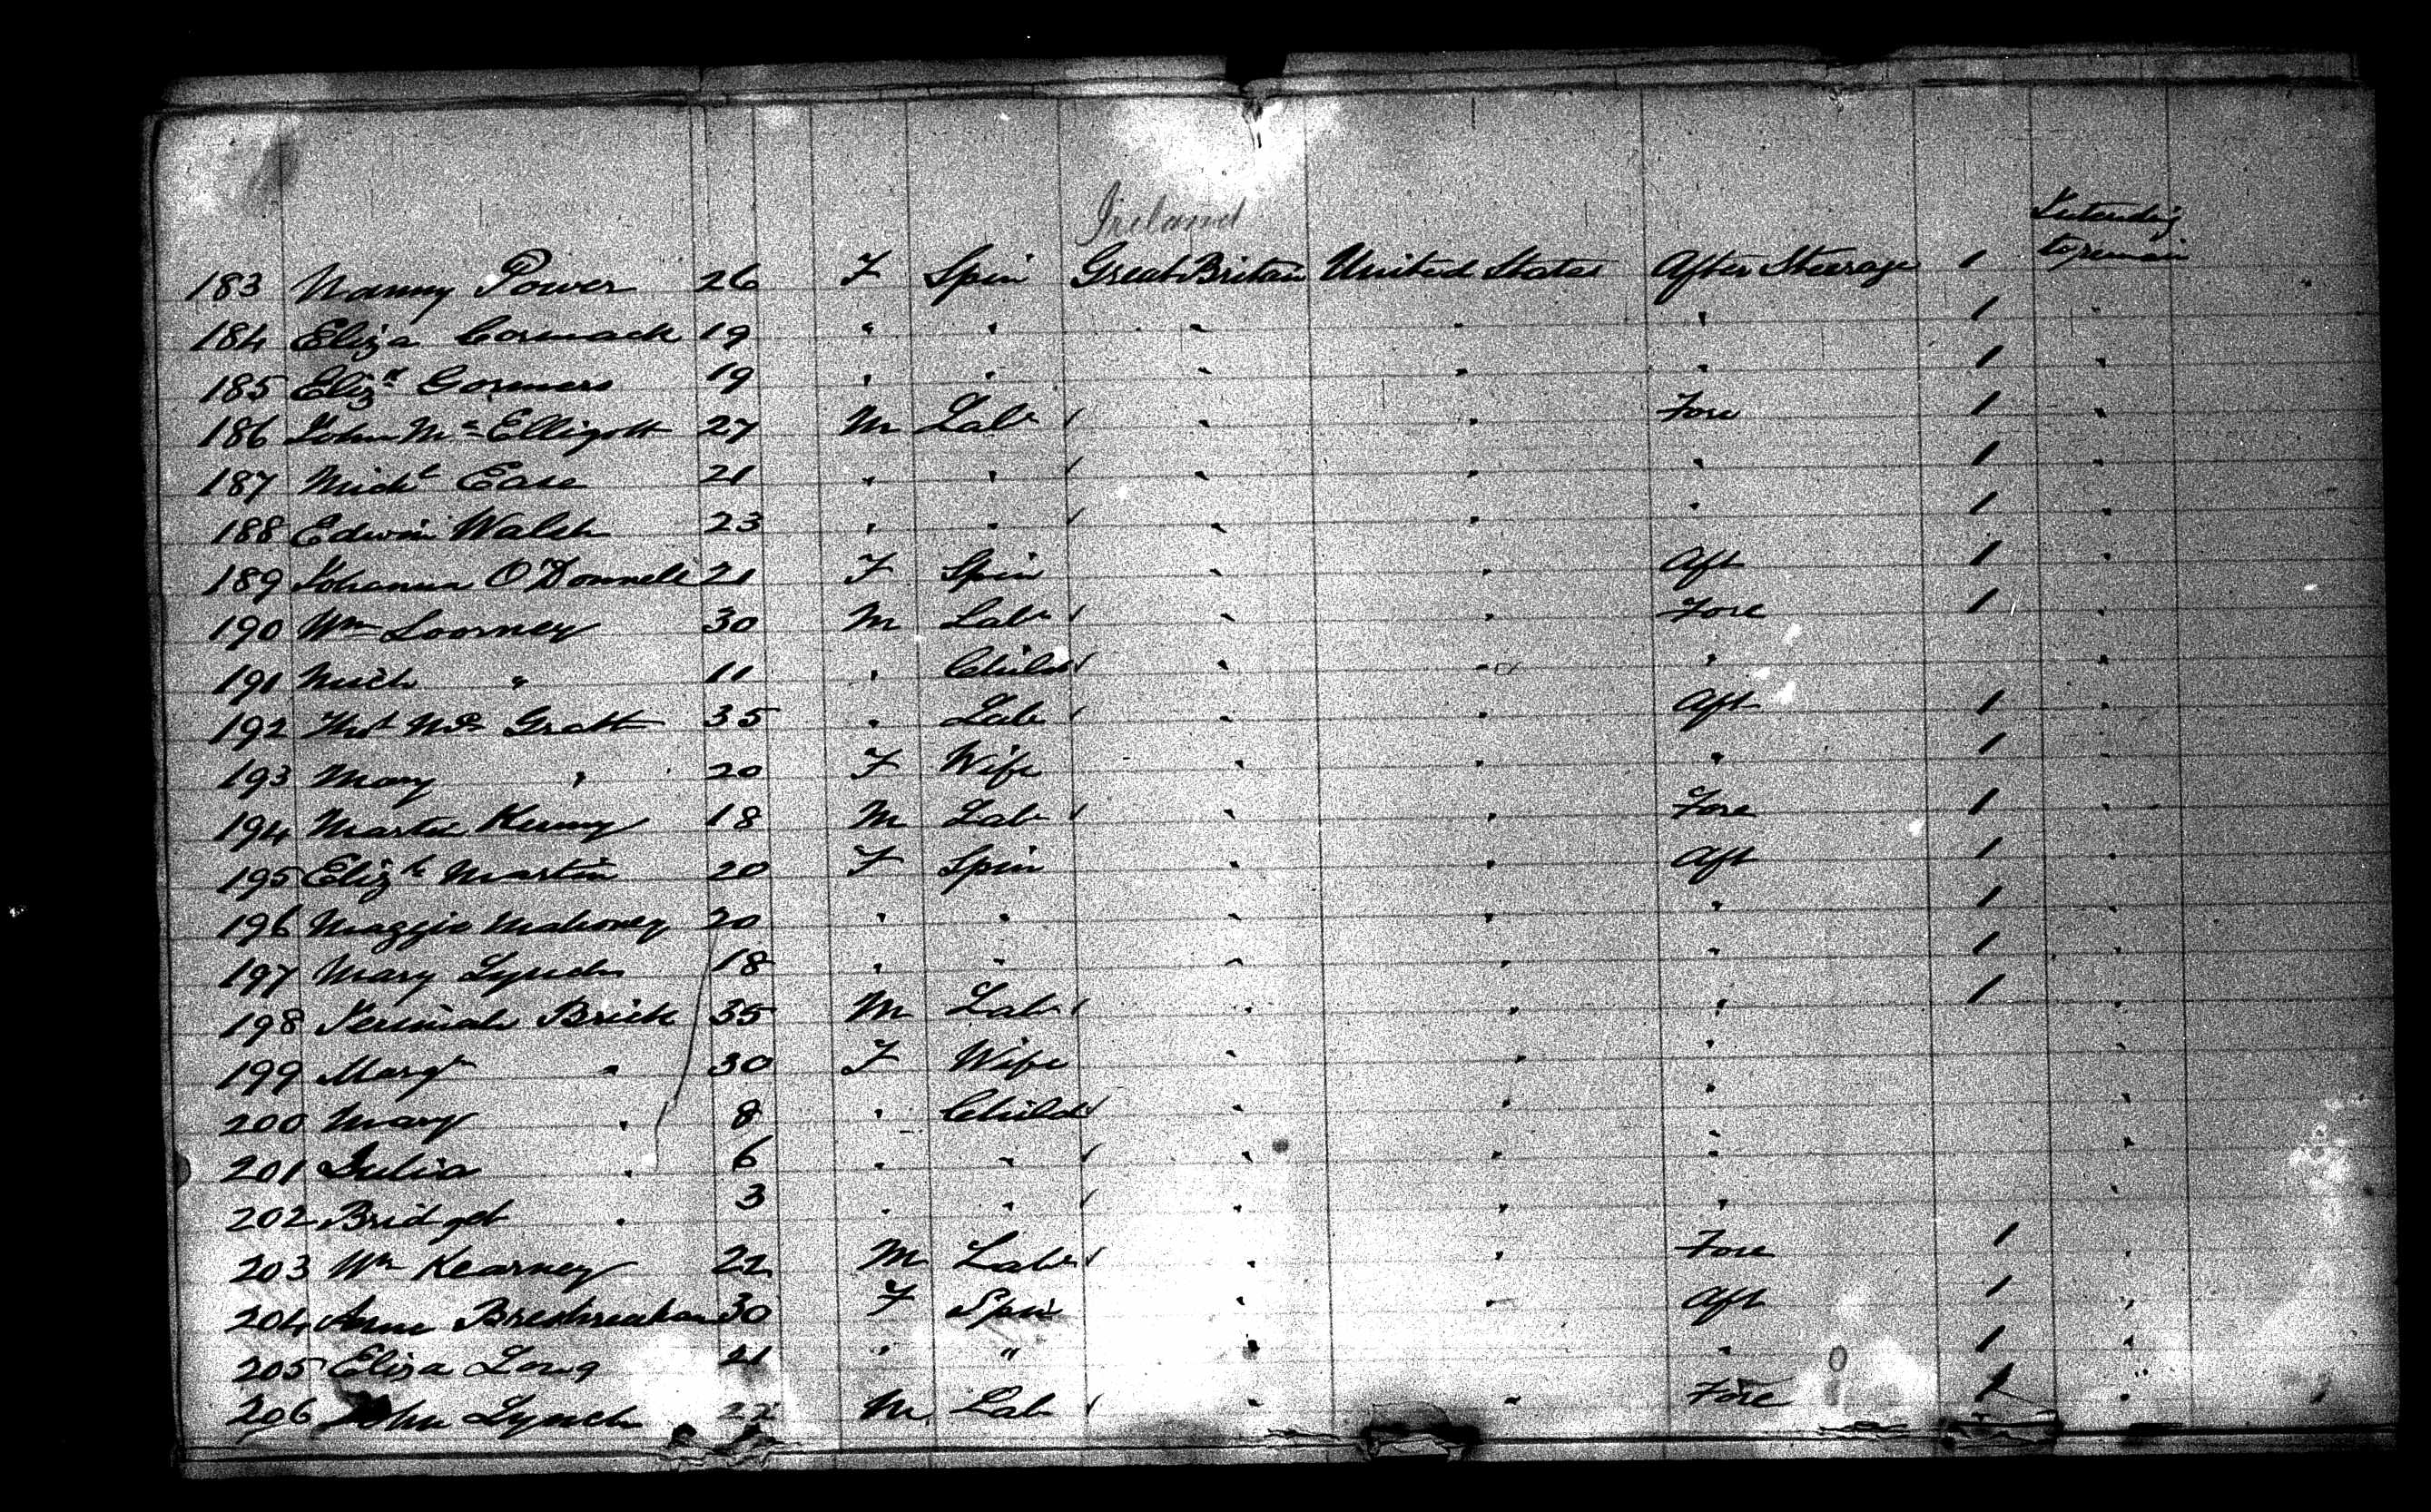 Ireland
Intending
to remain
183 Nanny Power 26 F Spin Great Britain United States After Steerage 1
184 Eliza Cormack 19 " " " " " 1 "
185 Eliz. Gormers 19 " " " " " 1 "
186 John Mc Elligott 27 M Lab " " Fore 1 "
187 Michl Ease 21 " " " " " 1 "
188 Edwin Walsh 23 " " " " " 1 "
189 Johanna O'Donnell 21 F Spin " " Aft 1 "
190 Wm Loorney 30 M Lab " " Fore 1 "
191 Mich " 11 " Child " " " "
192 Mc Gratt 35 " Lab " " Aft 1 "
193 Mary " 20 F Wife " " " 1 "
194 Martin Kenny 18 M Lab " " Fore 1 "
195 Elizh Martin 20 F Spin " " Aft 1 "
196 Maggie Mahoney 20 " " " " " 1 "
197 Mary Lynch 18 " " " " " 1 "
198 Jeremiah Brick 35 M Lab " " " 1 "
199 Margt " 30 F Wife " " " "
200 Mary " 8 " Child " " " "
201 Julia " 6 " " " " " "
202 Bridget " 3 " " " " " "
203 Wm Kearney 22 M Lab " " Fore 1 "
204 Anne 30 F Spin " " Aft 1 "
205 Eliza Long 21 " " " " " 1 "
206 John Lynch 22 M Lab " " Fore 1 "